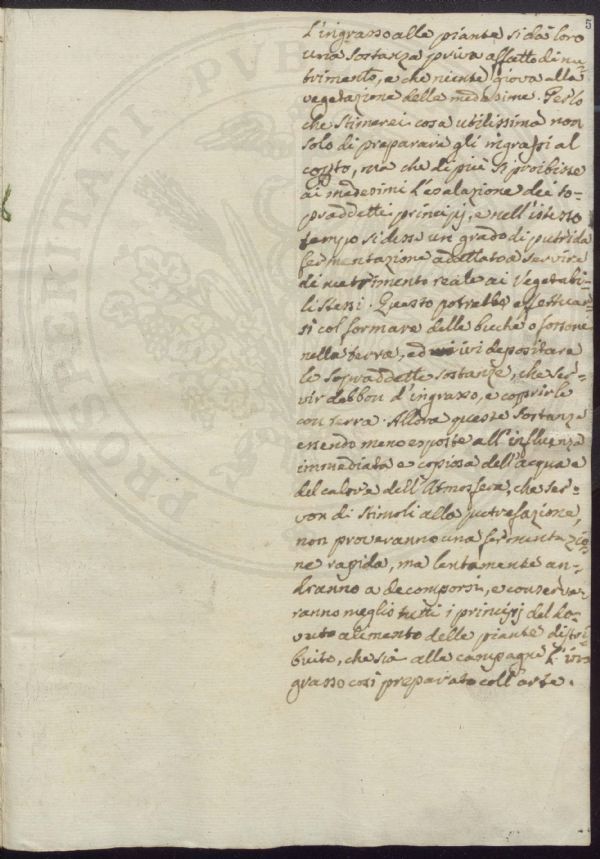 5
L'ingrasso alle piante si dà loro
una sostanza priva affatto di nu-
trimento, e che niente giova alla
vegetazione delle medesime. Perlo
che stimerei cosa utilissima non
solo di preparare gli ingrassi al
coperto, ma che di più si proibisse
ai medesimi l'esalazione dei so-
praddetti principj, e nell'istesso
tempo si desse un grado di putrida
fermentazione adattato a servire
di nutrimento reale ai Vegetabi-
li stessi. Questo potrebbe effettuar-
si col formare delle buche o fossone
nella terra, ed ivi depositare
le sopraddette sostanze, che ser-
vir debbon d'ingrasso, e coprirle
con terra. Allora queste sostanze
essendo meno esposte all'influenza
immediata e copiosa dell'acqua e
del calore dell'Atmosfera, che ser-
von di stimoli alla putrefazione,
non proveranno una fermentazio
ne rapida, ma lentamente an-
dranno a decomporsi, e conserve-
ranno meglio tutti i principj del do-
vuto alimento delle piante distri
buito, che sia alle campagne l'in
grasso così preparato coll'arte.
PROSPERITATI PUBL